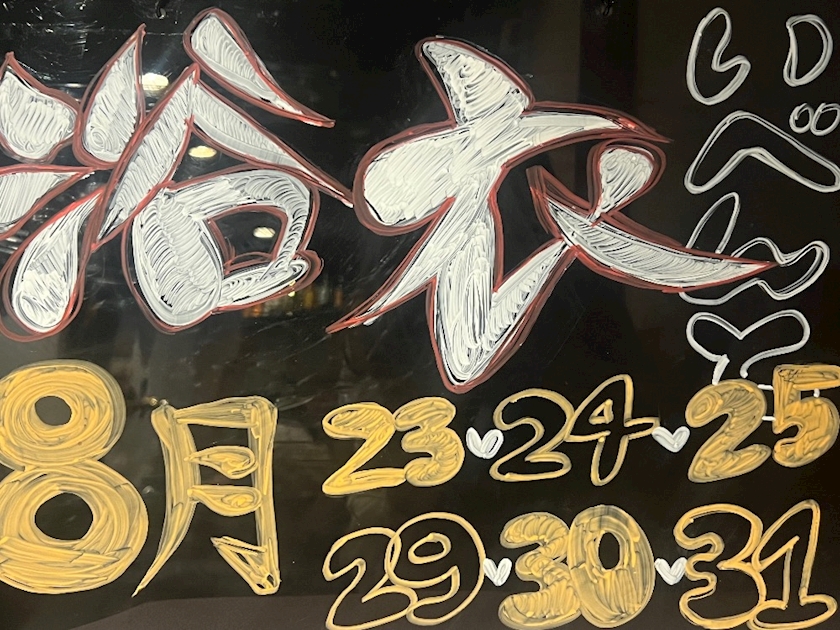 浴衣
いべんと
8月
23♡24♡25
29♡30♡31